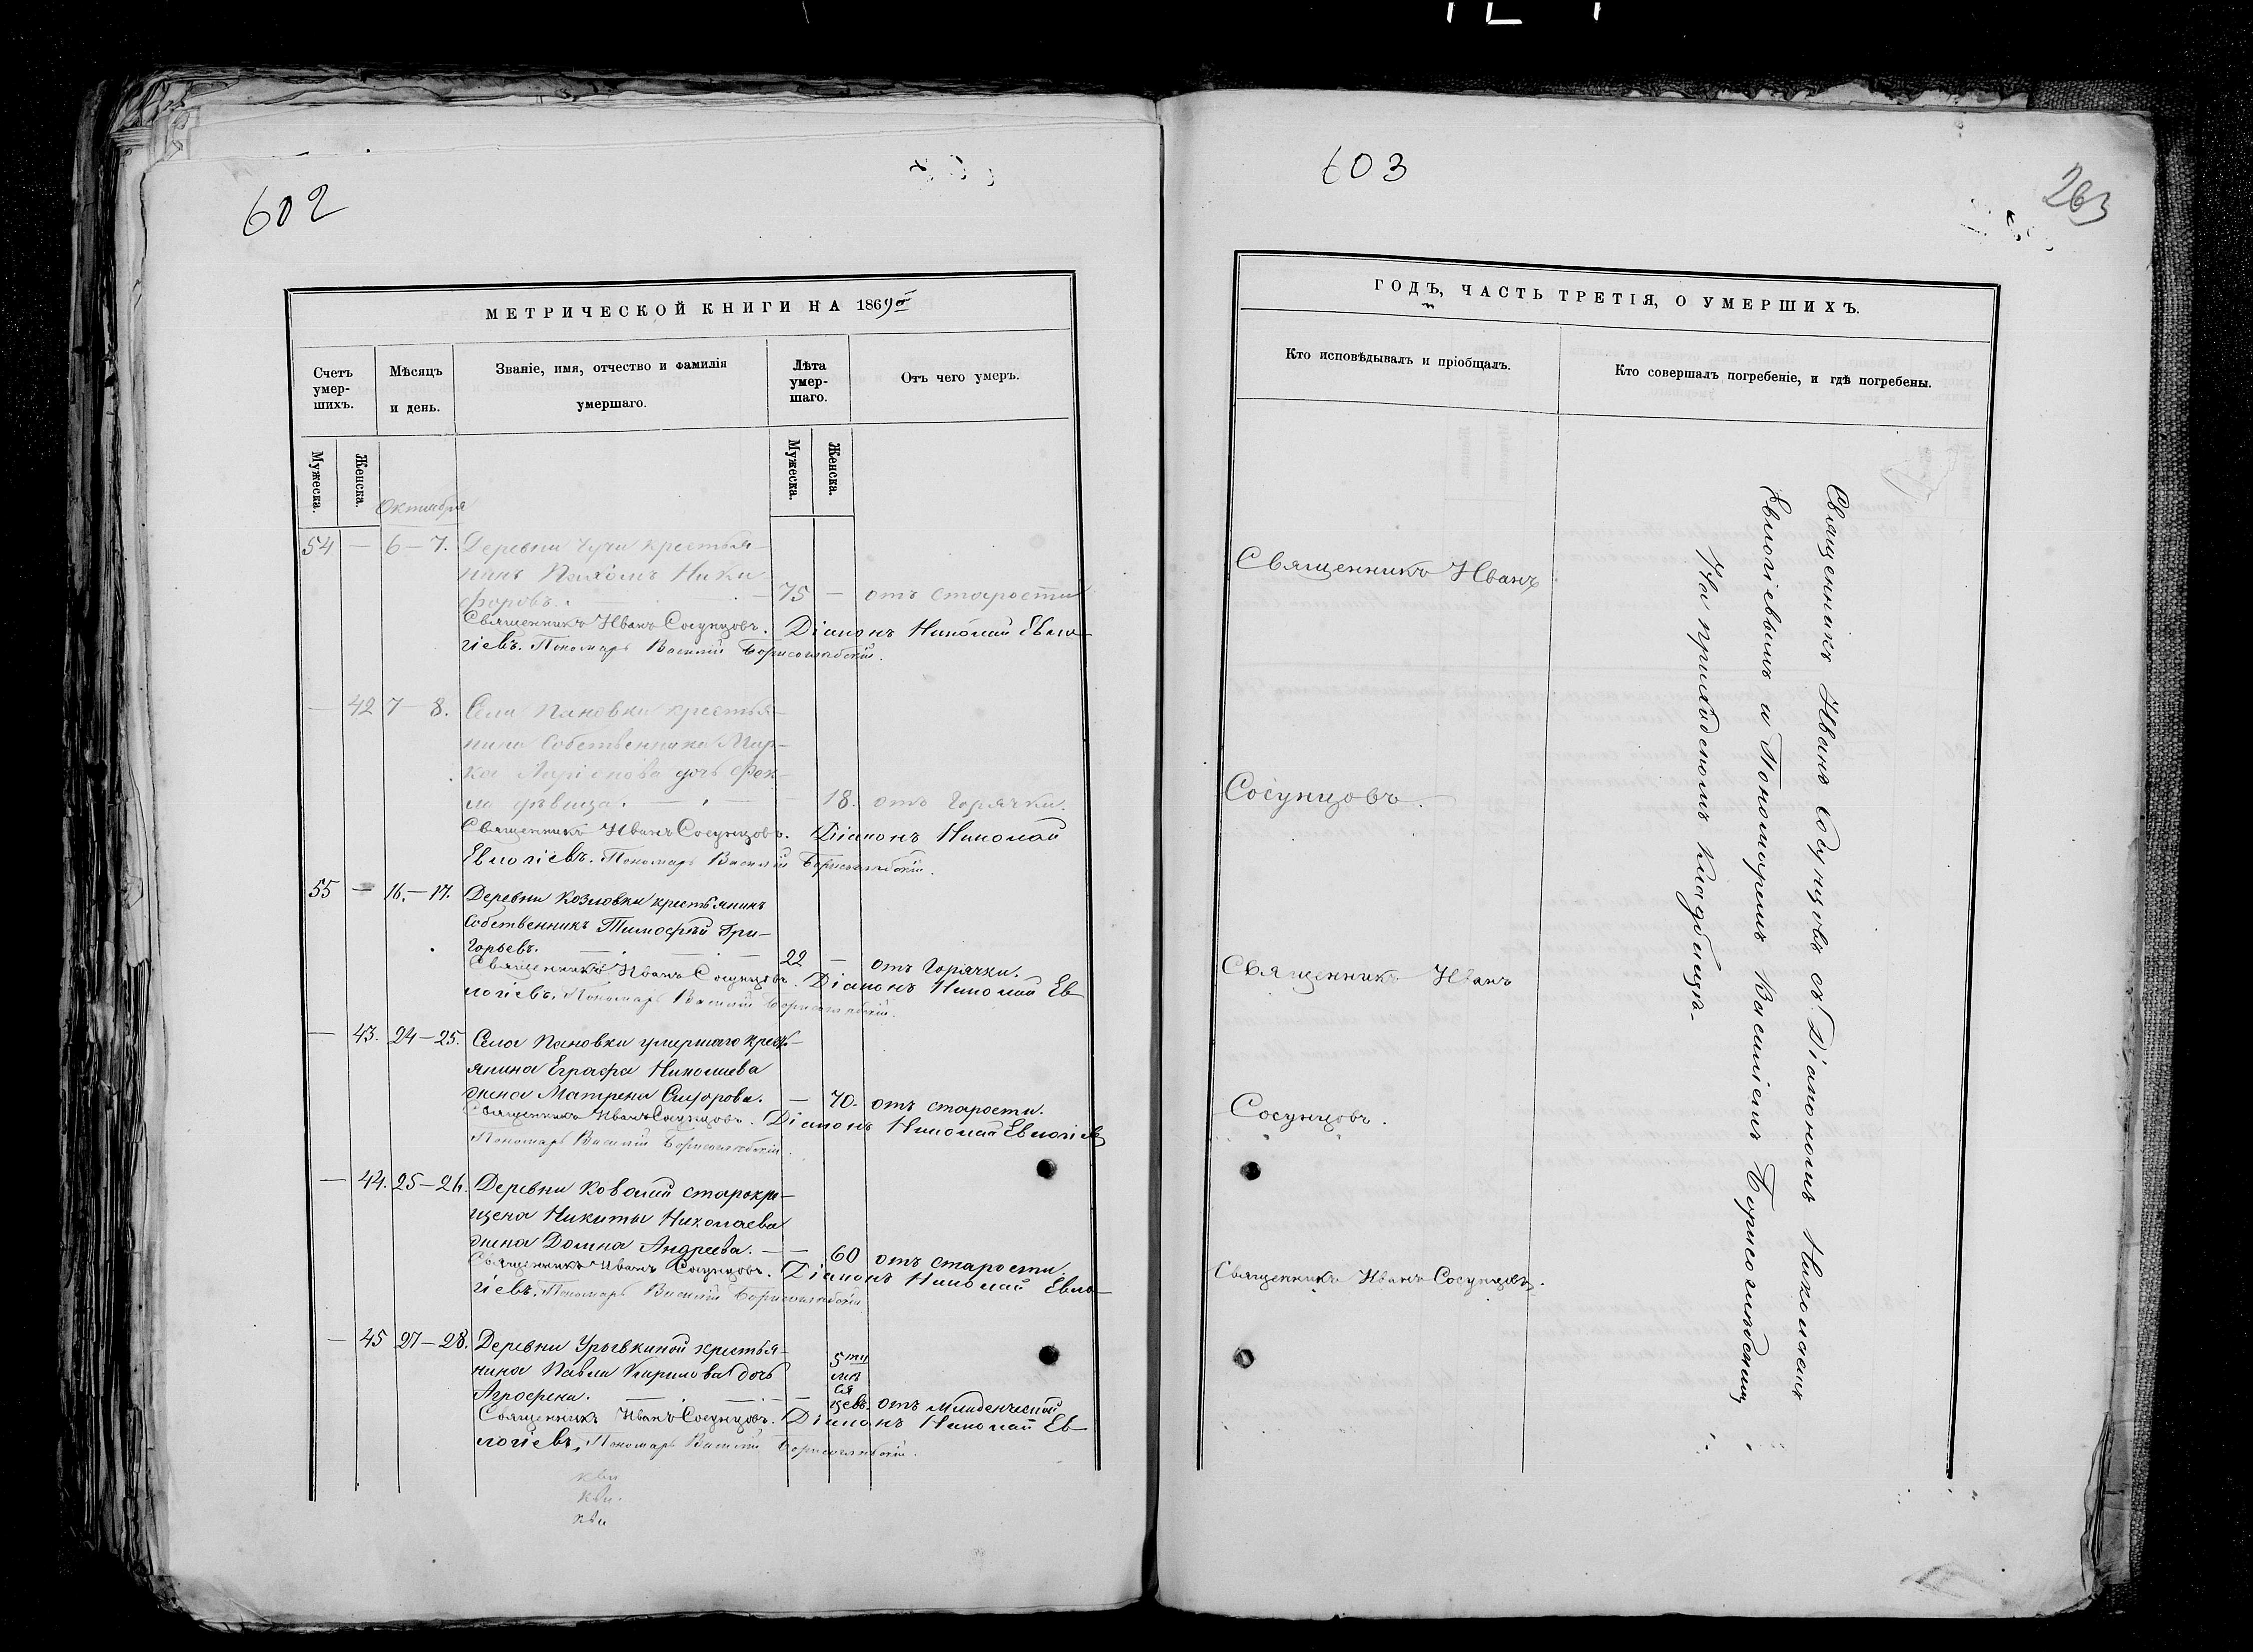 602
МЕТРИЧЕСКОЙ КНИГИ НА 1869й
Счетъ умер-шихъ.
Мѣсяцъ и день.
Званіе, имя, отчество и фамилія умершаго.
Лѣта умер-шаго.
Отъ чего умеръ.
Мужеска.
Женска.
Мужеска.
Женска.
Октября
54 — 6–7. Деревни Чучи крестья-
нинъ Пахомъ Ники
форовъ. — 75 — отъ старости
Священникъ Иванъ Сосунцовъ. Діаконъ Николай Евло-
гіевъ. Пономарь Василій Борисоглѣбскій.
— 42 7–8. Села Пановки крестья-
нина Собственника Мар-
ка Ларіонова дочь Фек-
ла дѣвица. — 18. отъ Горячки.
Священникъ Иванъ Сосунцовъ. Діаконъ Николай
Евлогіевъ. Пономарь Василій Борисоглѣбскій.
55 — 16.–17. Деревни Козловки крестьянинъ
Собственникъ Тимофѣй Гри-
горьевъ. — 22 — отъ Горячки.
Священникъ Иванъ Сосунцовъ. Діаконъ Николай Ев
логіевъ. Пономарь Василій Борисоглѣбскій.
— 43. 24–25. Села Пановки умершаго кресть-
янина Еграфа Николаева
жена Матрена Сидорова. — 70. отъ старости.
Священникъ Иванъ Сосунцовъ. Діаконъ Николай Евлогіевъ
Пономарь Василій Борисоглѣбскій.
— 44. 25–26. Деревни Ковалей старокре-
щена Никиты Николаева
жена Домна Андреева. — — 60 отъ старости.
Священникъ Иванъ Сосунцовъ. Діаконъ Николай Евло-
гіевъ. Пономарь Василій Борисоглѣбскій
— 45 27–28. Деревни Урывкиной крестья-
нина Павла Кирилова дочь
Агрофена. — — 5ти мѣсяцевъ. отъ младенческой
Священникъ Иванъ Сосунцовъ. Діаконъ Николай Ев-
логіевъ. Пономарь Василій Борисоглѣбскій.
603
263
ГОДЪ, ЧАСТЬ ТРЕТІЯ, О УМЕРШИХЪ.
Кто исповѣдывалъ и пріобщалъ.
Кто совершалъ погребеніе, и гдѣ погребены.
Священникъ Иванъ
Сосунцовъ.
Священникъ Иванъ
Сосунцовъ.
Священникъ Иванъ Сосунцовъ.
Священникъ Иванъ Сосунцовъ съ Діакономъ Николаемъ
Евлогіевымъ и Пономаремъ Василіемъ Борисоглѣбскимъ
На приходскомъ кладбищѣ.